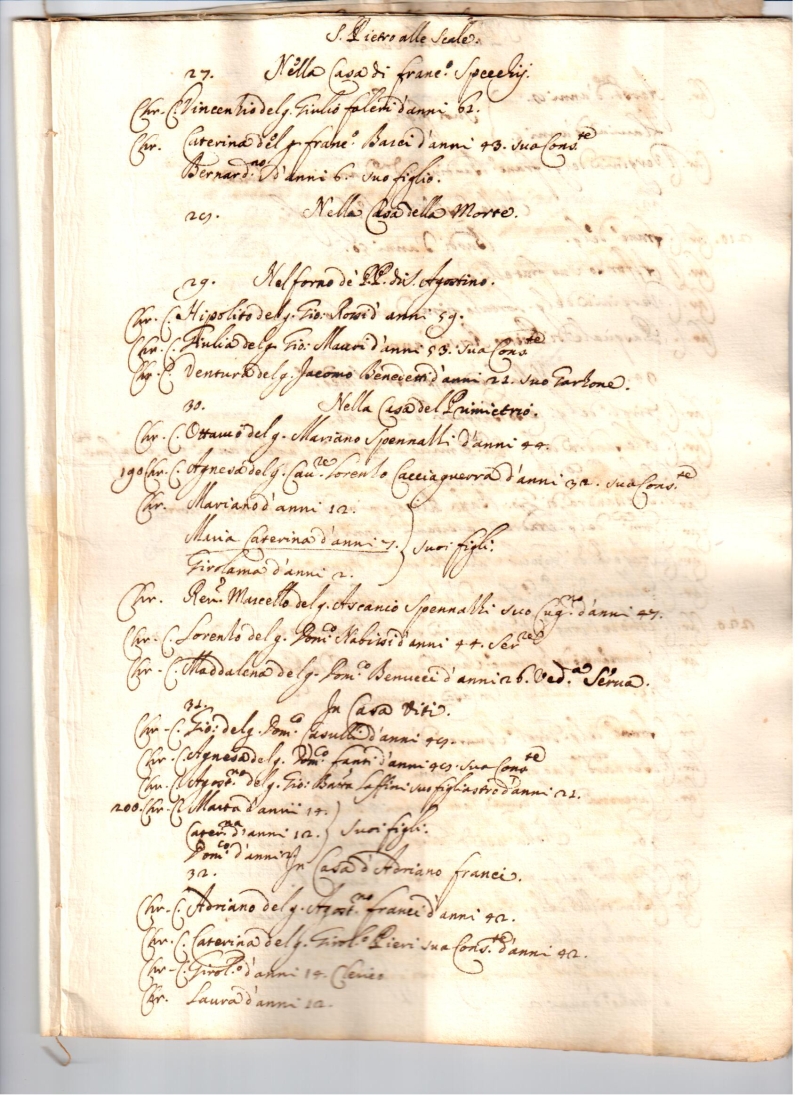 S. Pietro alle Scale.
27. Nella Casa di franc.o Specchij.
Chr. C. Vincenzio del q. Giulio faleri d'anni 62.
Chr. Caterina del q. franc.o Basci d'anni 43. sua Cons.te
Bernard.no d'anni 6. suo figlio.
Nella Casa della Morte.
29. Nel forno de PP. di S. Agostino.
Chr. C. Hipolito del q. Gio: Rossi d'anni 59.
Chr. C. Giulia del q. Gio: Mauri d'anni 53. sua Cons.te
Chr. C. Ventura del q. Jacomo Benedetti d'anni 21. suo Garzone.
30. Nella Casa del
Chr. C. Ottavio del q. Mariano Spennazzi d'anni 44.
190 Chr. C. Agnesa del q. Cau.re Lorenzo Cacciaguerra d'anni 32. sua Cons.te
Chr. Mariano d'anni 12.
Maria Caterina d'anni 7. } suoi figli.
Girolama d'anni 2.
Chr. Rev.o Marcello del q. Ascanio Spennazzi suo Cug.no d'anni 47.
Chr. C. Lorenzo del q. Dom.co d'anni 44. Ser.re
Chr. C. Maddalena del q. Dom.co Benucci d'anni 26. Ved.a Serua.
31. In Casa Viti.
Chr. C. Gio: del q. Dom.co Casulli d'anni
Chr. C. Agnesa del q. Dom.co fanti d'anni sua Cons.te
Chr. C. Agost.no del q. Gio: Batta Saffini suo figliastro d'anni 21.
200. Chr. C. Marta d'anni 14.
Cater.na d'anni 12. } suoi figli.
Dom.co d'anni
32. In Casa d'Adriano franci.
Chr. C. Adriano del q. Agost.no franci d'anni 42.
Chr. C. Caterina del q. Girol.o Pieri sua Cons.te d'anni 42.
Chr. C. Girol.o d'anni 14. Clerico
Chr. Laura d'anni 12.